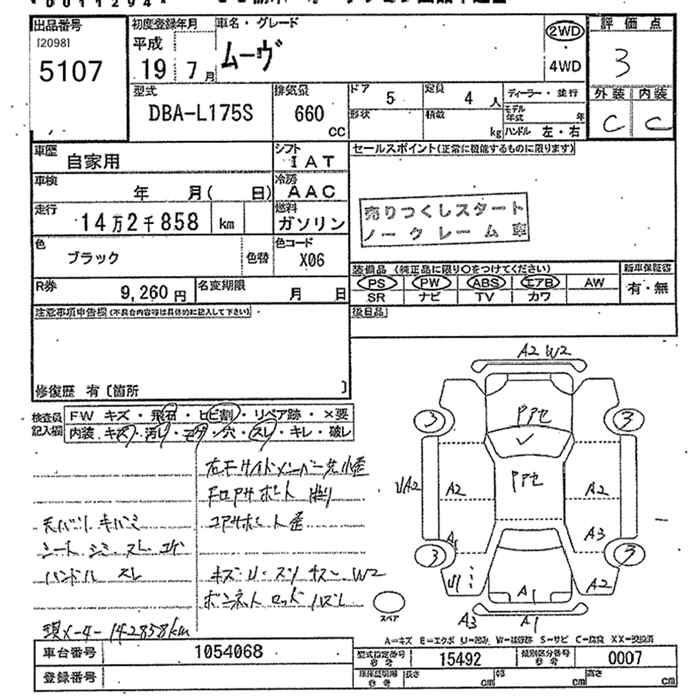 出品番号 初度登録年月 車名・グレード 2WD 評価点
[2098] 平成 ムーヴ 4WD 3
5107 19 7月
型式 排気量 ドア 5 定員 4人 ディーラー・並行 外装 内装
DBA-L175S 660 CC 形状 積載 kg モデル年式 年 C C
ハンドル 左・右
車歴 自家用 シフト IAT セールスポイント(正常に機能するものに限ります)
車検 年 月( 日) 冷房 AAC
走行 14万2千858 km 燃料 ガソリン
売りつくしスタート
ノークレーム車
色 ブラック 色替 色コード X06
装備品 (純正品に限り○をつけてください) 新車保証書
R券 9,260円 名変期限 月 日
PS PW ABS エアB AW 有・無
SR ナビ TV カワ
注意事項申告欄(不具合内容等は具体的に記入して下さい) 後日品
修復歴 有 [箇所 ]
検査員記入欄 FW キズ・飛石・ヒビ割・リペア跡・×要
内装 キズ・汚れ・モゲ・穴・スレ・キレ・破レ
右フサイドメンバー先小歪
コアサポート歪
天バリ キバミ
シート シミ スレ
ハンドル スレ
W2
ボンネットロッドハズレ
現メーター142858km
A2 W2
3 PPセ 3
A2 PPセ A2
A1 A3
3 3
A2
スペア A3 A1 A1
A=キズ E=エクボ U=凹み W=補修跡 S=サビ C=腐食 XX=交換済
車台番号 1054068 型式指定番号 参考 15492 類別区分番号 参考 0007
登録番号 長さ cm 幅 cm 高さ cm